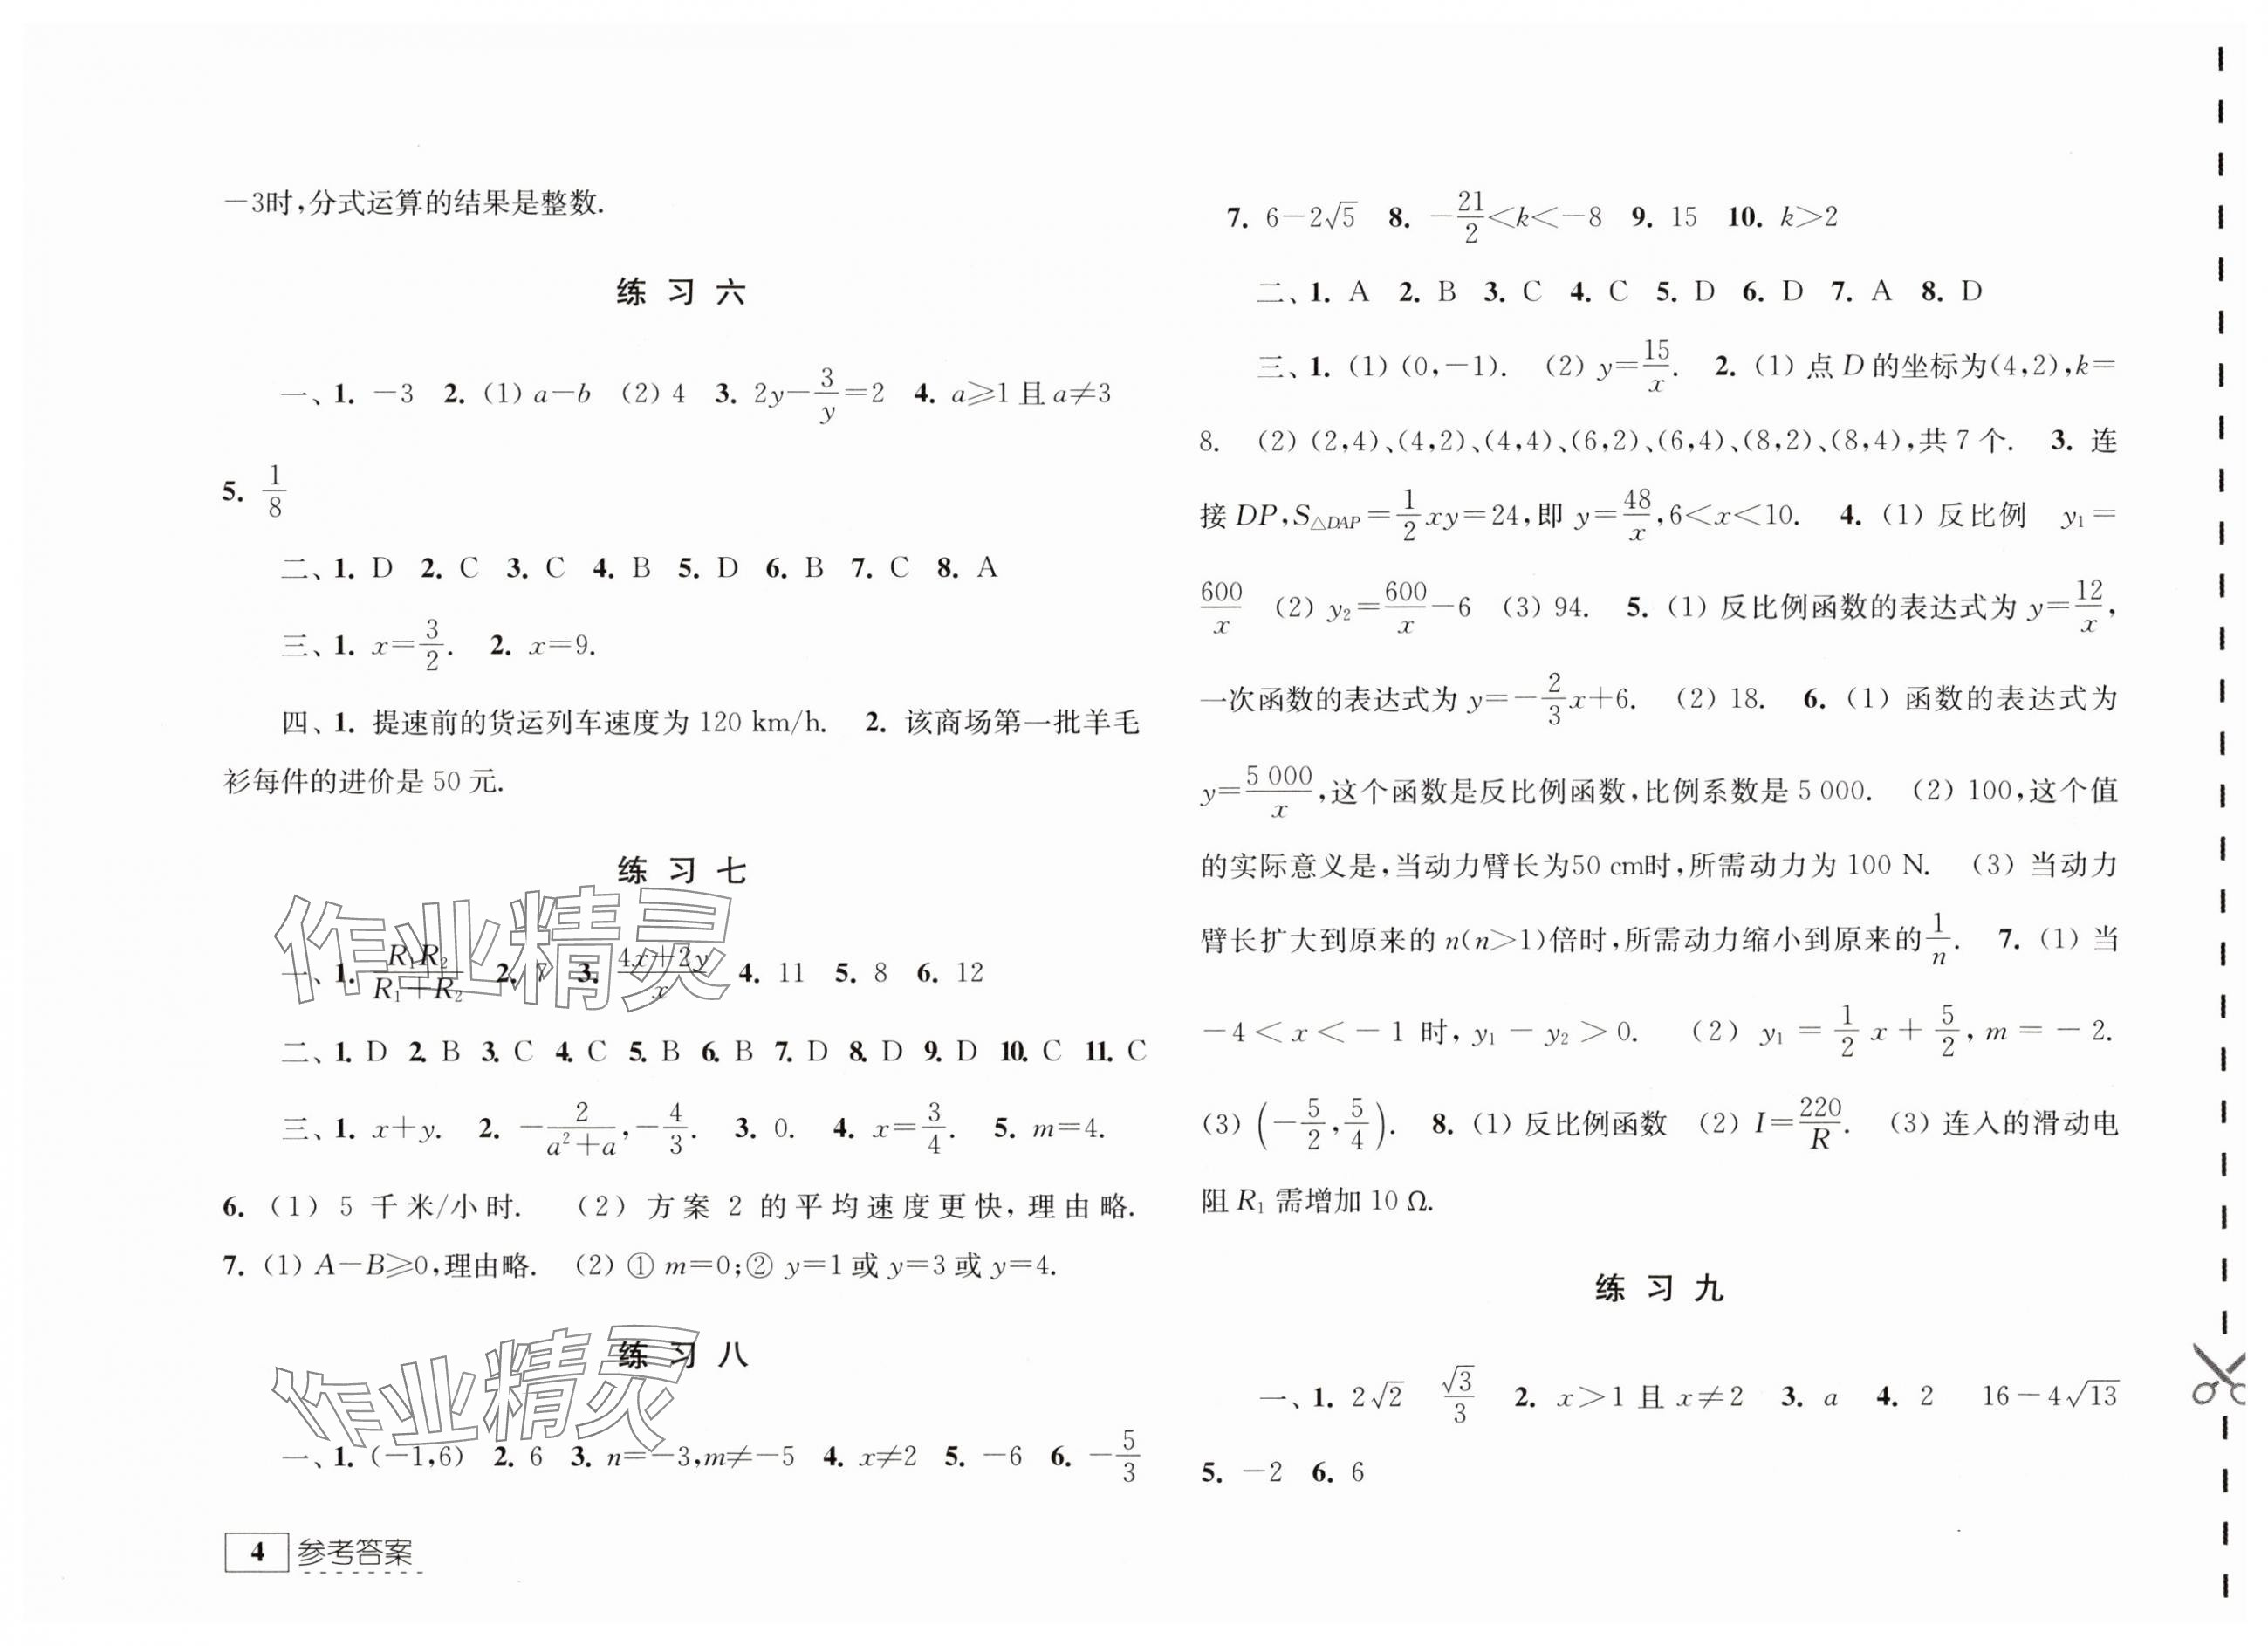 －3时,分式运算的结果是整数.
练 习 六
一、1. －3 2. (1) a－b (2) 4 3. 2y－3/y＝2 4. a⩾1 且 a≠3
5. 1/8
二、1. D 2. C 3. C 4. B 5. D 6. B 7. C 8. A
三、1. x＝3/2. 2. x＝9.
四、1. 提速前的货运列车速度为 120 km/h. 2. 该商场第一批羊毛
衫每件的进价是 50 元.
练 习 七
一、1. R₁R₂/(R₁＋R₂) 2. 7 3. (4x＋2y)/x 4. 11 5. 8 6. 12
二、1. D 2. B 3. C 4. C 5. B 6. B 7. D 8. D 9. D 10. C 11. C
三、1. x＋y. 2. －2/(a²＋a),－4/3. 3. 0. 4. x＝3/4. 5. m＝4.
6. (1) 5 千米/小时. (2) 方案 2 的平均速度更快,理由略.
7. (1) A－B⩾0,理由略. (2) ① m＝0;② y＝1 或 y＝3 或 y＝4.
练 习 八
一、1. (－1,6) 2. 6 3. n＝－3,m≠－5 4. x≠2 5. －6 6. －5/3
4 参考答案
7. 6－2√5 8. －21/2＜k＜－8 9. 15 10. k＞2
二、1. A 2. B 3. C 4. C 5. D 6. D 7. A 8. D
三、1. (1) (0,－1). (2) y＝15/x. 2. (1) 点 D 的坐标为(4,2),k＝
8. (2) (2,4)、(4,2)、(4,4)、(6,2)、(6,4)、(8,2)、(8,4),共 7 个. 3. 连
接 DP,S△DAP＝1/2 xy＝24,即 y＝48/x,6＜x＜10. 4. (1) 反比例 y₁＝
600/x (2) y₂＝600/x－6 (3) 94. 5. (1) 反比例函数的表达式为 y＝12/x,
一次函数的表达式为 y＝－2/3 x＋6. (2) 18. 6. (1) 函数的表达式为
y＝5 000/x,这个函数是反比例函数,比例系数是 5 000. (2) 100,这个值
的实际意义是,当动力臂长为50 cm时,所需动力为 100 N. (3) 当动力
臂长扩大到原来的 n(n＞1)倍时,所需动力缩小到原来的1/n. 7. (1) 当
－4＜x＜－1 时,y₁－y₂＞0. (2) y₁＝1/2 x＋5/2,m＝－2.
(3) (－5/2,5/4). 8. (1) 反比例函数 (2) I＝220/R. (3) 连入的滑动电
阻 R₁ 需增加 10 Ω.
练 习 九
一、1. 2√2 √3/3 2. x＞1 且 x≠2 3. a 4. 2 16－4√13
5. －2 6. 6
作业精灵
作业精灵